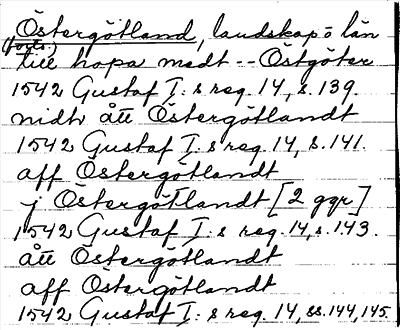 Östergötland, landskap o län
(forts.)
till hopa medt -- Östgöter
1542 Gustaf I:s reg. 14, s. 139.
nidr ått Östergötlandt
1542 Gustaf I:s reg. 14, s. 141.
aff Östergötlandt
j Östergötlandt [2 ggr]
1542 Gustaf I:s reg. 14, s. 143.
ått Östergötlandt
aff Östergötlandt
1542 Gustaf I:s reg. 14, ss. 144, 145.